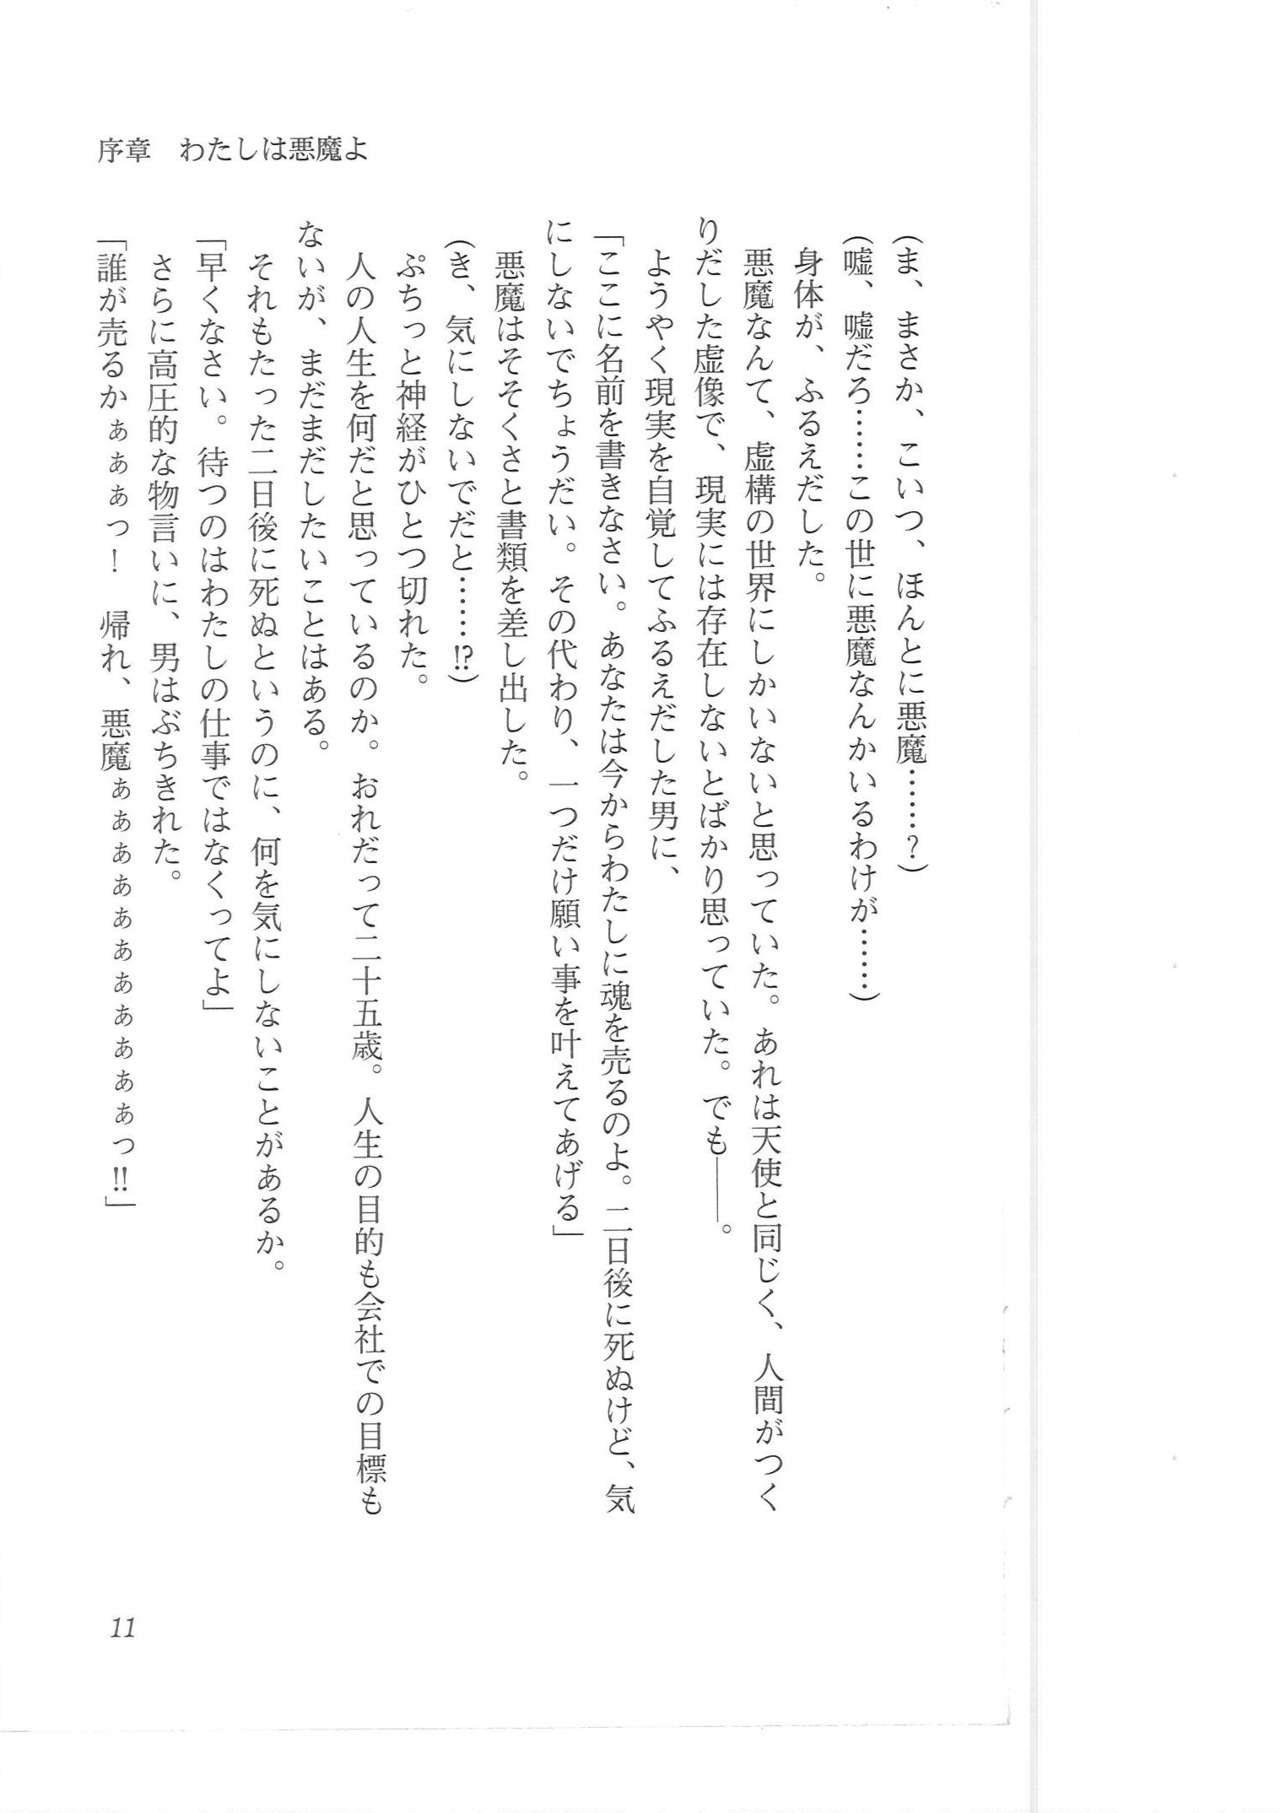 序章　わたしは悪魔よ
（ま、まさか、こいつ、ほんとに悪魔……？）
（嘘、嘘だろ……この世に悪魔なんかいるわけが……）
身体が、ふるえだした。
悪魔なんて、虚構の世界にしかいないと思っていた。あれは天使と同じく、人間がつく
りだした虚像で、現実には存在しないとばかり思っていた。でも――。
ようやく現実を自覚してふるえだした男に、
「ここに名前を書きなさい。あなたは今からわたしに魂を売るのよ。二日後に死ぬけど、気
にしないでちょうだい。その代わり、一つだけ願い事を叶えてあげる」
悪魔はそそくさと書類を差し出した。
（き、気にしないでだと……!?）
ぷちっと神経がひとつ切れた。
人の人生を何だと思っているのか。おれだって二十五歳。人生の目的も会社での目標も
ないが、まだまだしたいことはある。
それもたった二日後に死ぬというのに、何を気にしないことがあるか。
「早くなさい。待つのはわたしの仕事ではなくってよ」
さらに高圧的な物言いに、男はぶちきれた。
「誰が売るかぁぁぁっ！　帰れ、悪魔ぁぁぁぁぁぁぁぁぁぁぁっ!!」
11